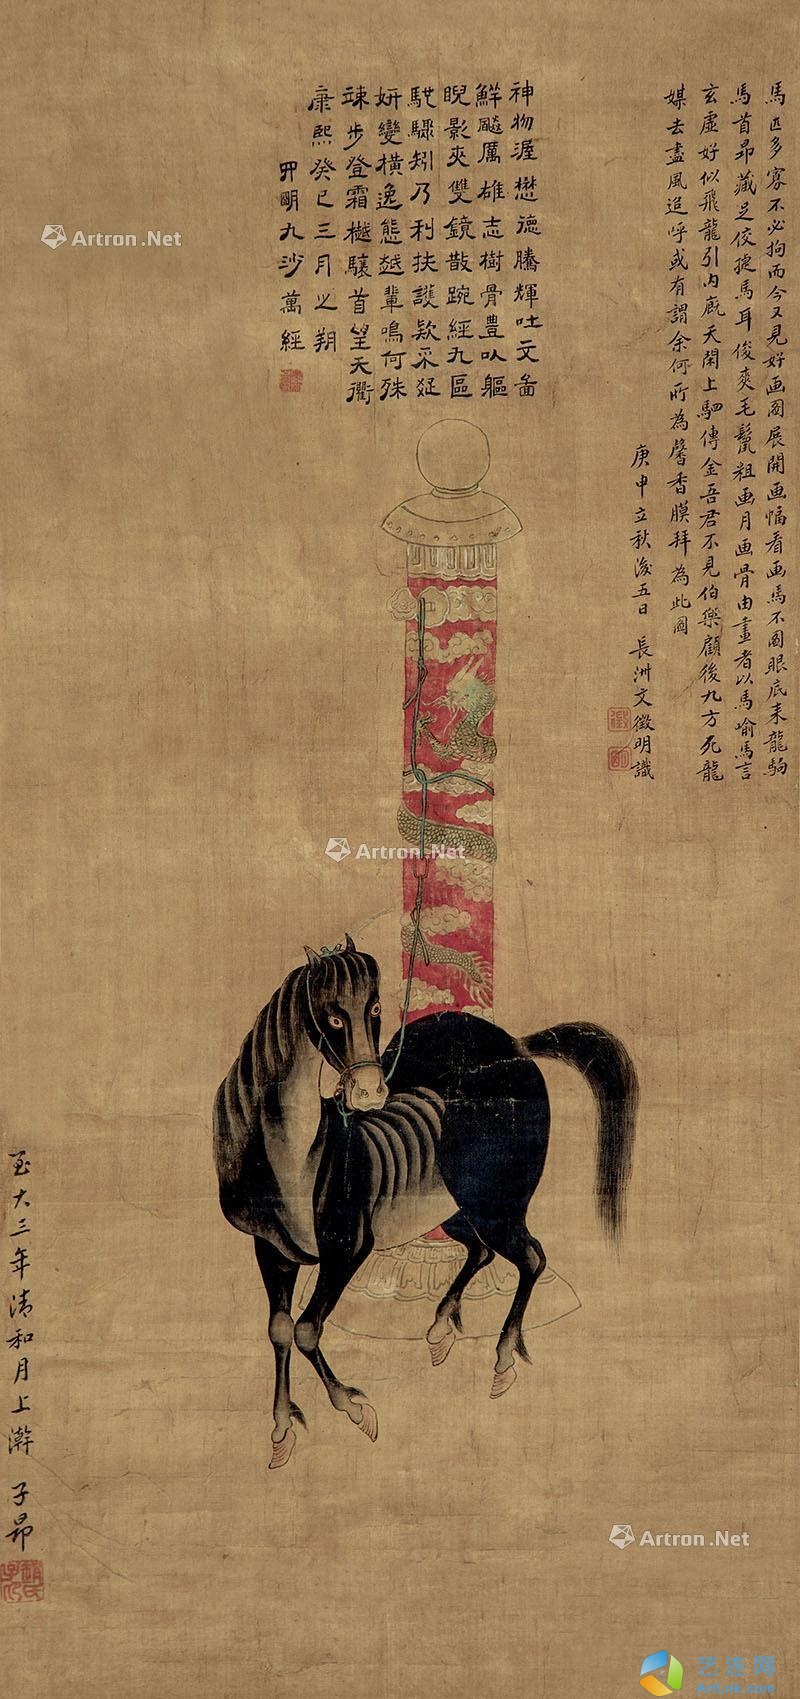 馬匹多寡不必拘而今又見好画圖展開画幅看画馬不圖眼底来龍駒
馬首昻藏足佼捷馬耳俊爽毛鬣粗画月画骨由畫者以馬喻馬言
玄虛好似飛龍引内廐天閑上駟傳金吾君不見伯樂顧後九方死龍
媒去盡風追呼或有謂余何所為馨香膜拜為此圖
庚申立秋後五日 長洲文徵明識
徵
明
神物渥 德騰輝吐文畲
鮮飇厲雄志樹骨豊以軀
睨影夾雙鏡散踠經九區
馳驟 乃利扶護欵采
妍變橫逸態越輩鳴何殊
竦步登霜樾驤首望天衢
康熙癸巳三月之朔
四明九沙萬經
至大三年清和月上澣 子昻
趙氏子昂
Artron.Net
Artron.Net
Artron.Net
艺连网